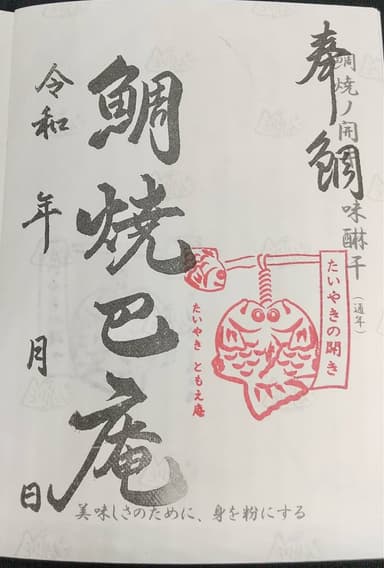 奉鯛
鯛焼ノ開
味醂干
(通年)
たいやきの開き
たいやき ともえ庵
鯛焼巴庵
令和 年 月 日
美味しさのために、身を粉にする